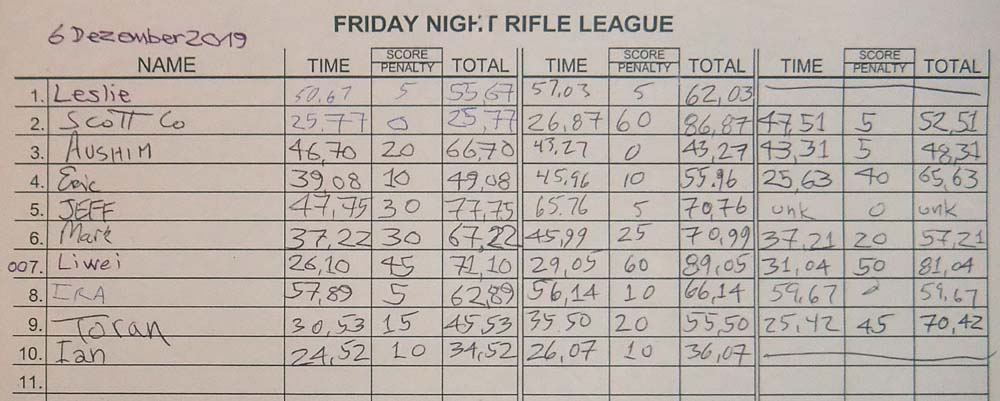 FRIDAY NIGHT RIFLE LEAGUE
6 Dezember 2019
NAME TIME SCORE PENALTY TOTAL TIME SCORE PENALTY TOTAL TIME SCORE PENALTY TOTAL
1. Leslie 50,67 5 55,67 57,03 5 62,03
2. SCOTT Co 25,77 0 25,77 26,87 60 86,87 47,51 5 52,51
3. AUSHIM 46,70 20 66,70 43,27 0 43,27 43,31 5 48,31
4. Eric 39,08 10 49,08 45,96 10 55.96 25,63 40 65,63
5. JEFF 47,75 30 77,75 65.76 5 70,76 unk 0 unk
6. Mark 37,22 30 67,22 45,99 25 70,99 37,21 20 57,21
007. Liwei 26,10 45 71,10 29,05 60 89,05 31,04 50 81,04
8. IRA 57,89 5 62,89 56,14 10 66,14 59,67 59,67
9. Toran 30,53 15 45,53 35.50 20 55,50 25,42 45 70,42
10. Ian 24,52 10 34,52 26,07 10 36,07
11.